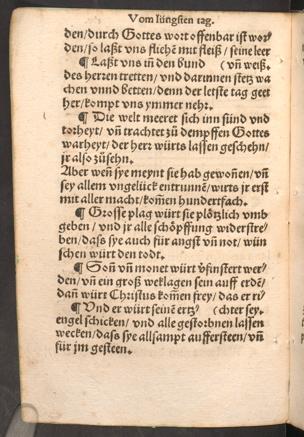 Vom lüngsten tag.
den/durch Gottes wort offenbar ist wor⸗
den/so laßt vns fliehē mit fleiß/seine leer
¶ Laßt vns in den bund (vñ weiß.
des herren tretten/vnd darinnen stetz wa
chen vnnd betten/denn der letste tag geet
her/kompt vns ymmer nehr.
¶ Die welt meeret sich inn sünd vnd
torheyt/vñ trachtet zů dempffen Gottes
warheyt/der herr würts lassen geschehn/
jr also zůsehn.
Aber weñ sye meynt sie hab gewonen/vñ
sey allem vngelück entrunnē/wirts jr erst
mit aller macht/komen hundertfach.
¶ Grosse plag würt sye plötzlich vmb
geben/vnd jr alle schöpffung widerstre⸗
ben/dass sye auch für angst vñ not/wün
schen würt den todt.
¶ Soñ vñ monet würt v̈finstert wer⸗
den/vñ ein groß weklagen sein auff erdē/
dañ würt Christus komen frey/das er ri⸗
¶ Vnd er würt seinē ertz⸗ (chter sey.
engel schicken/vnd alle gestorbnen lassen
wecken/dass sye allsampt auffersteen/vñ
für jm gesteen.